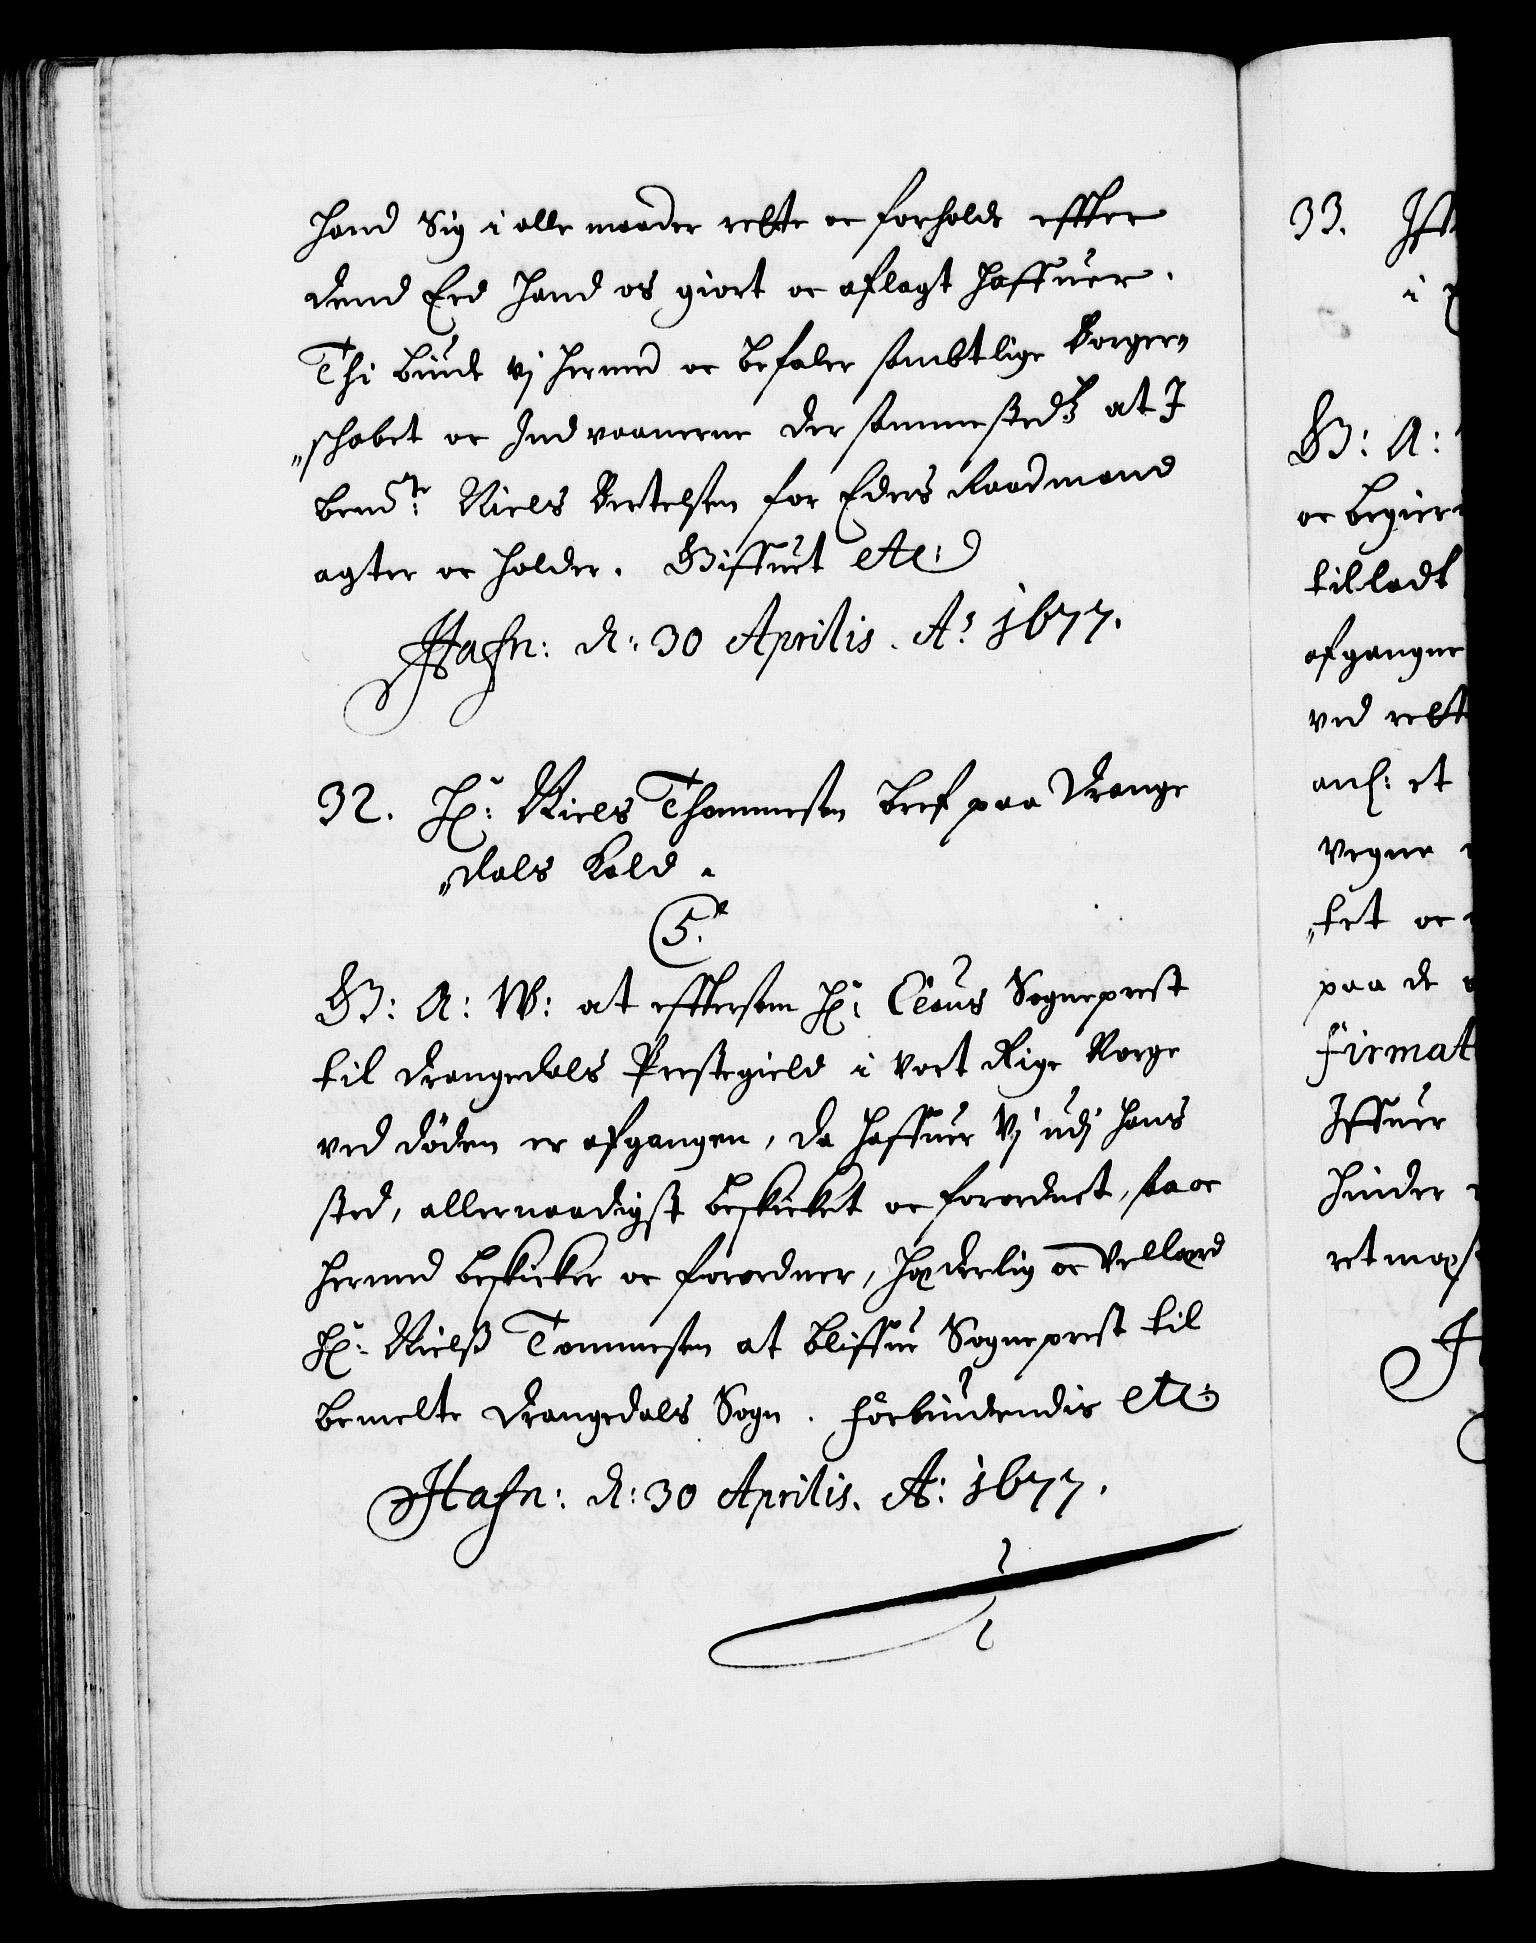 hand Sig i alle maader rette oc forholde effter
dend Eed hand os giort oc aflagt haffuer.
Thi biude vi hermed oc befaler sambtlige Borger„
„schabet oc Indvaanerne der sammestedz at I
bemte: Niels Bertelsen for Eders Raadmand
agter oc holder. Giffuet etc:
Hafn: d: 30 Aprilis. Ao: 1677.
32. Hr: Niels Thommesen bref paa Drange
„dals Kald.
C5.
G: A: W: at efftersom Hr: Claus Sogneprest
til Drangedals Prestegield i Vort Rige Norge
ved döden er afgangen, da haffuer Vj udj hans
sted, allernaadigst beskicket oc forordnet, saa oc
hermed beskicker oc forordner, Hæderlig oc Vellærd
Hr: Nielss Tommesen at bliffue Sogneprest til
bemelte Drangedals Sogn. Forbiudendis etc:
Hafn: d: 30 Aprilis. A: 1677.
33.
i
G: A:
oc begier
tilladt
afgangne
ved rette
anl: et
Vegne
„tet oc
paa de
firmat
Iffuer
hinder